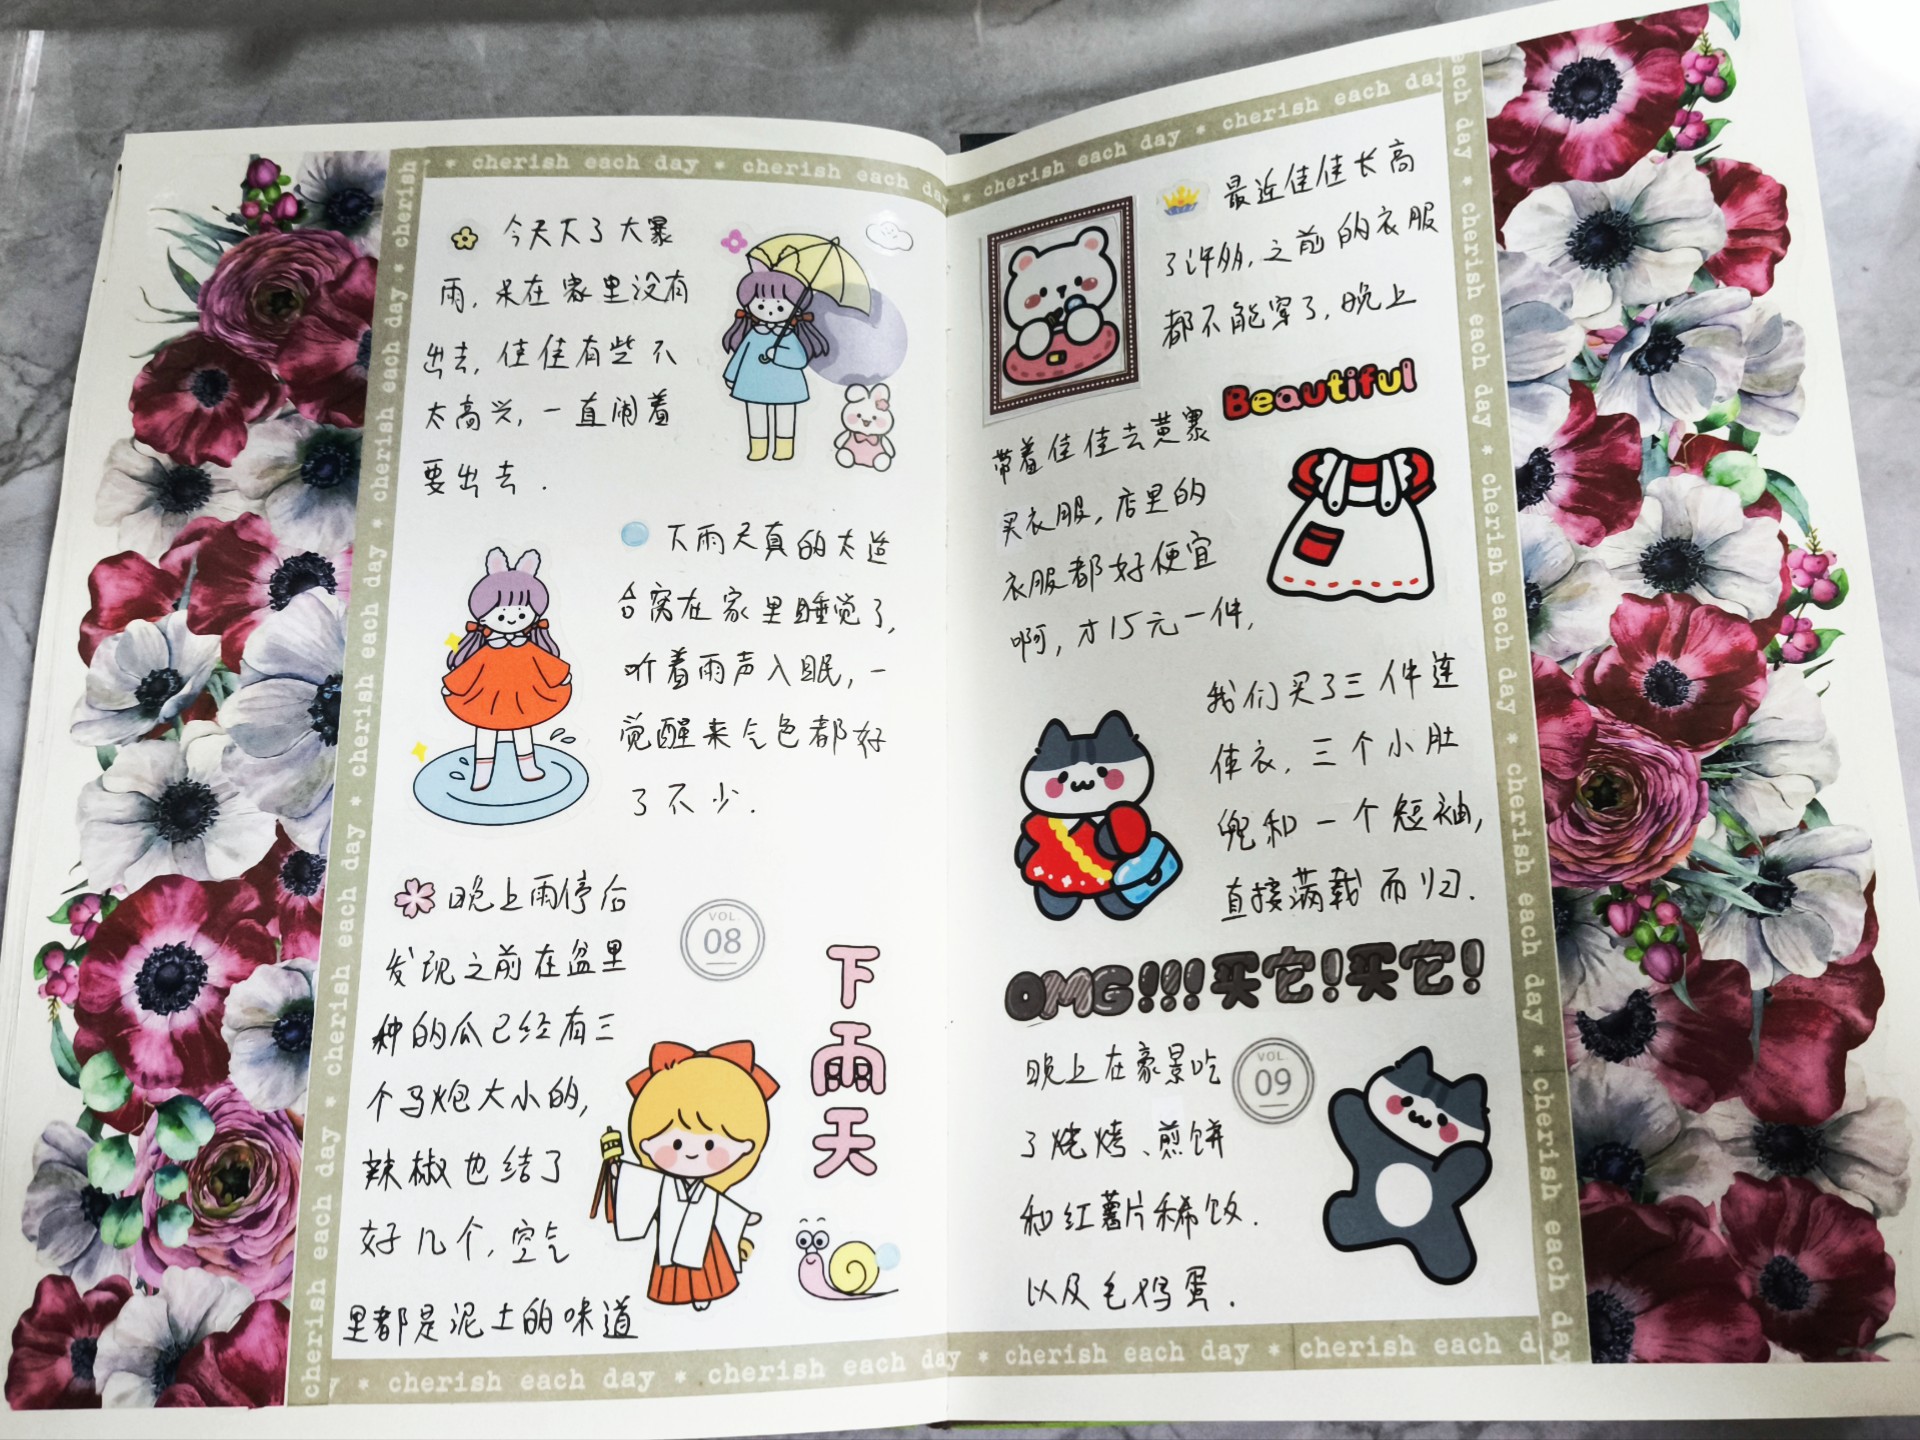 * cherish each day * cherish each day
cherish * cherish each day * cherish each day * cherish each day * cherish each day * cherish
今天下了大暴
雨，呆在家里没有
出去，佳佳有些不
太高兴，一直闹着
要出去.
下雨天真的太适
合窝在家里睡觉了，
听着雨声入眠，一
觉醒来气色都好
了不少.
晚上雨停后
发现之前在盆里
种的瓜已经有三
个马炮大小的，
辣椒也结了
好几个，空气
里都是泥土的味道
VOL
08
下雨天
y * cherish each day * cherish each day * cherish each day * cherish each d
* cherish each day * cherish each day
each day * cherish each day * cherish each day * cherish each day * cherish each day
最近佳佳长高
了许多，之前的衣服
都不能穿了，晚上
Beautiful
带着佳佳去黄寨
买衣服，店里的
衣服都好便宜
啊，才15元一件，
我们买了三件连
体衣，三个小肚
兜和一个短袖，
直接满载而归.
OMG!!!买它!买它!
VOL
09
晚上在豪景吃
了烧烤、煎饼
和红薯片稀饭.
以及毛鸡蛋.